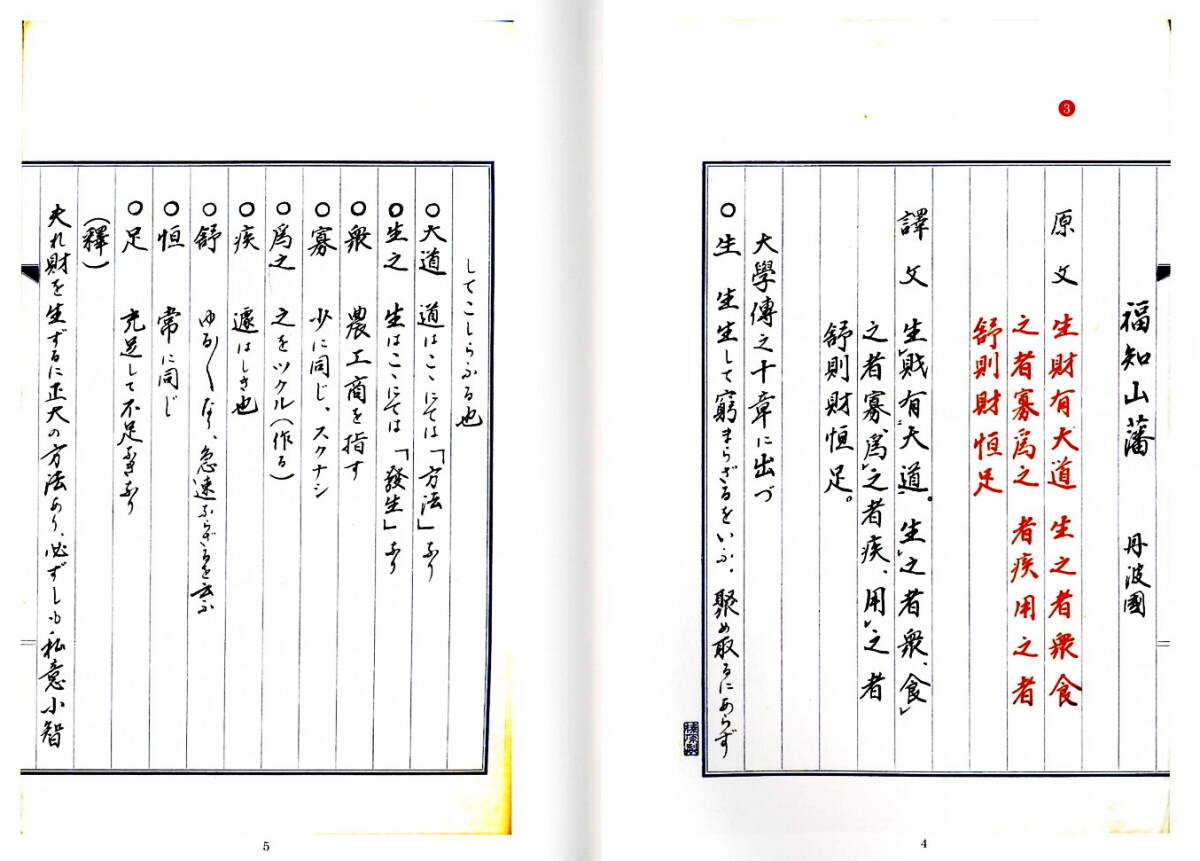 3
福知山藩 丹波國
原文 生財有大道 生之者衆食
之者寡爲之 者疾用之者
舒則財恒足
譯文 生レ財有二大道一。生レ之者衆、食レ
之者寡、爲レ之者疾、用レ之者
舒則財恒足。
大學傳之十章に出づ
○生 生生して窮まらざるをいふ、聚め取るにあらず
4
してこしらふる也
○大道 道はこゝにては「方法」なり
○生之 生はこゝにては「發生」なり
○衆 農工商を指す
○寡 少に同じ、スクナシ
○爲之 之をツクル(作る)
○疾 遽はしき也
○舒 ゆる〱なり、急速ならざるを云ふ
○恒 常に同じ
○足 充足して不足なきなり
(釋)
夫れ財を生ずるに正大の方法あり、必ずしも私意小智
5